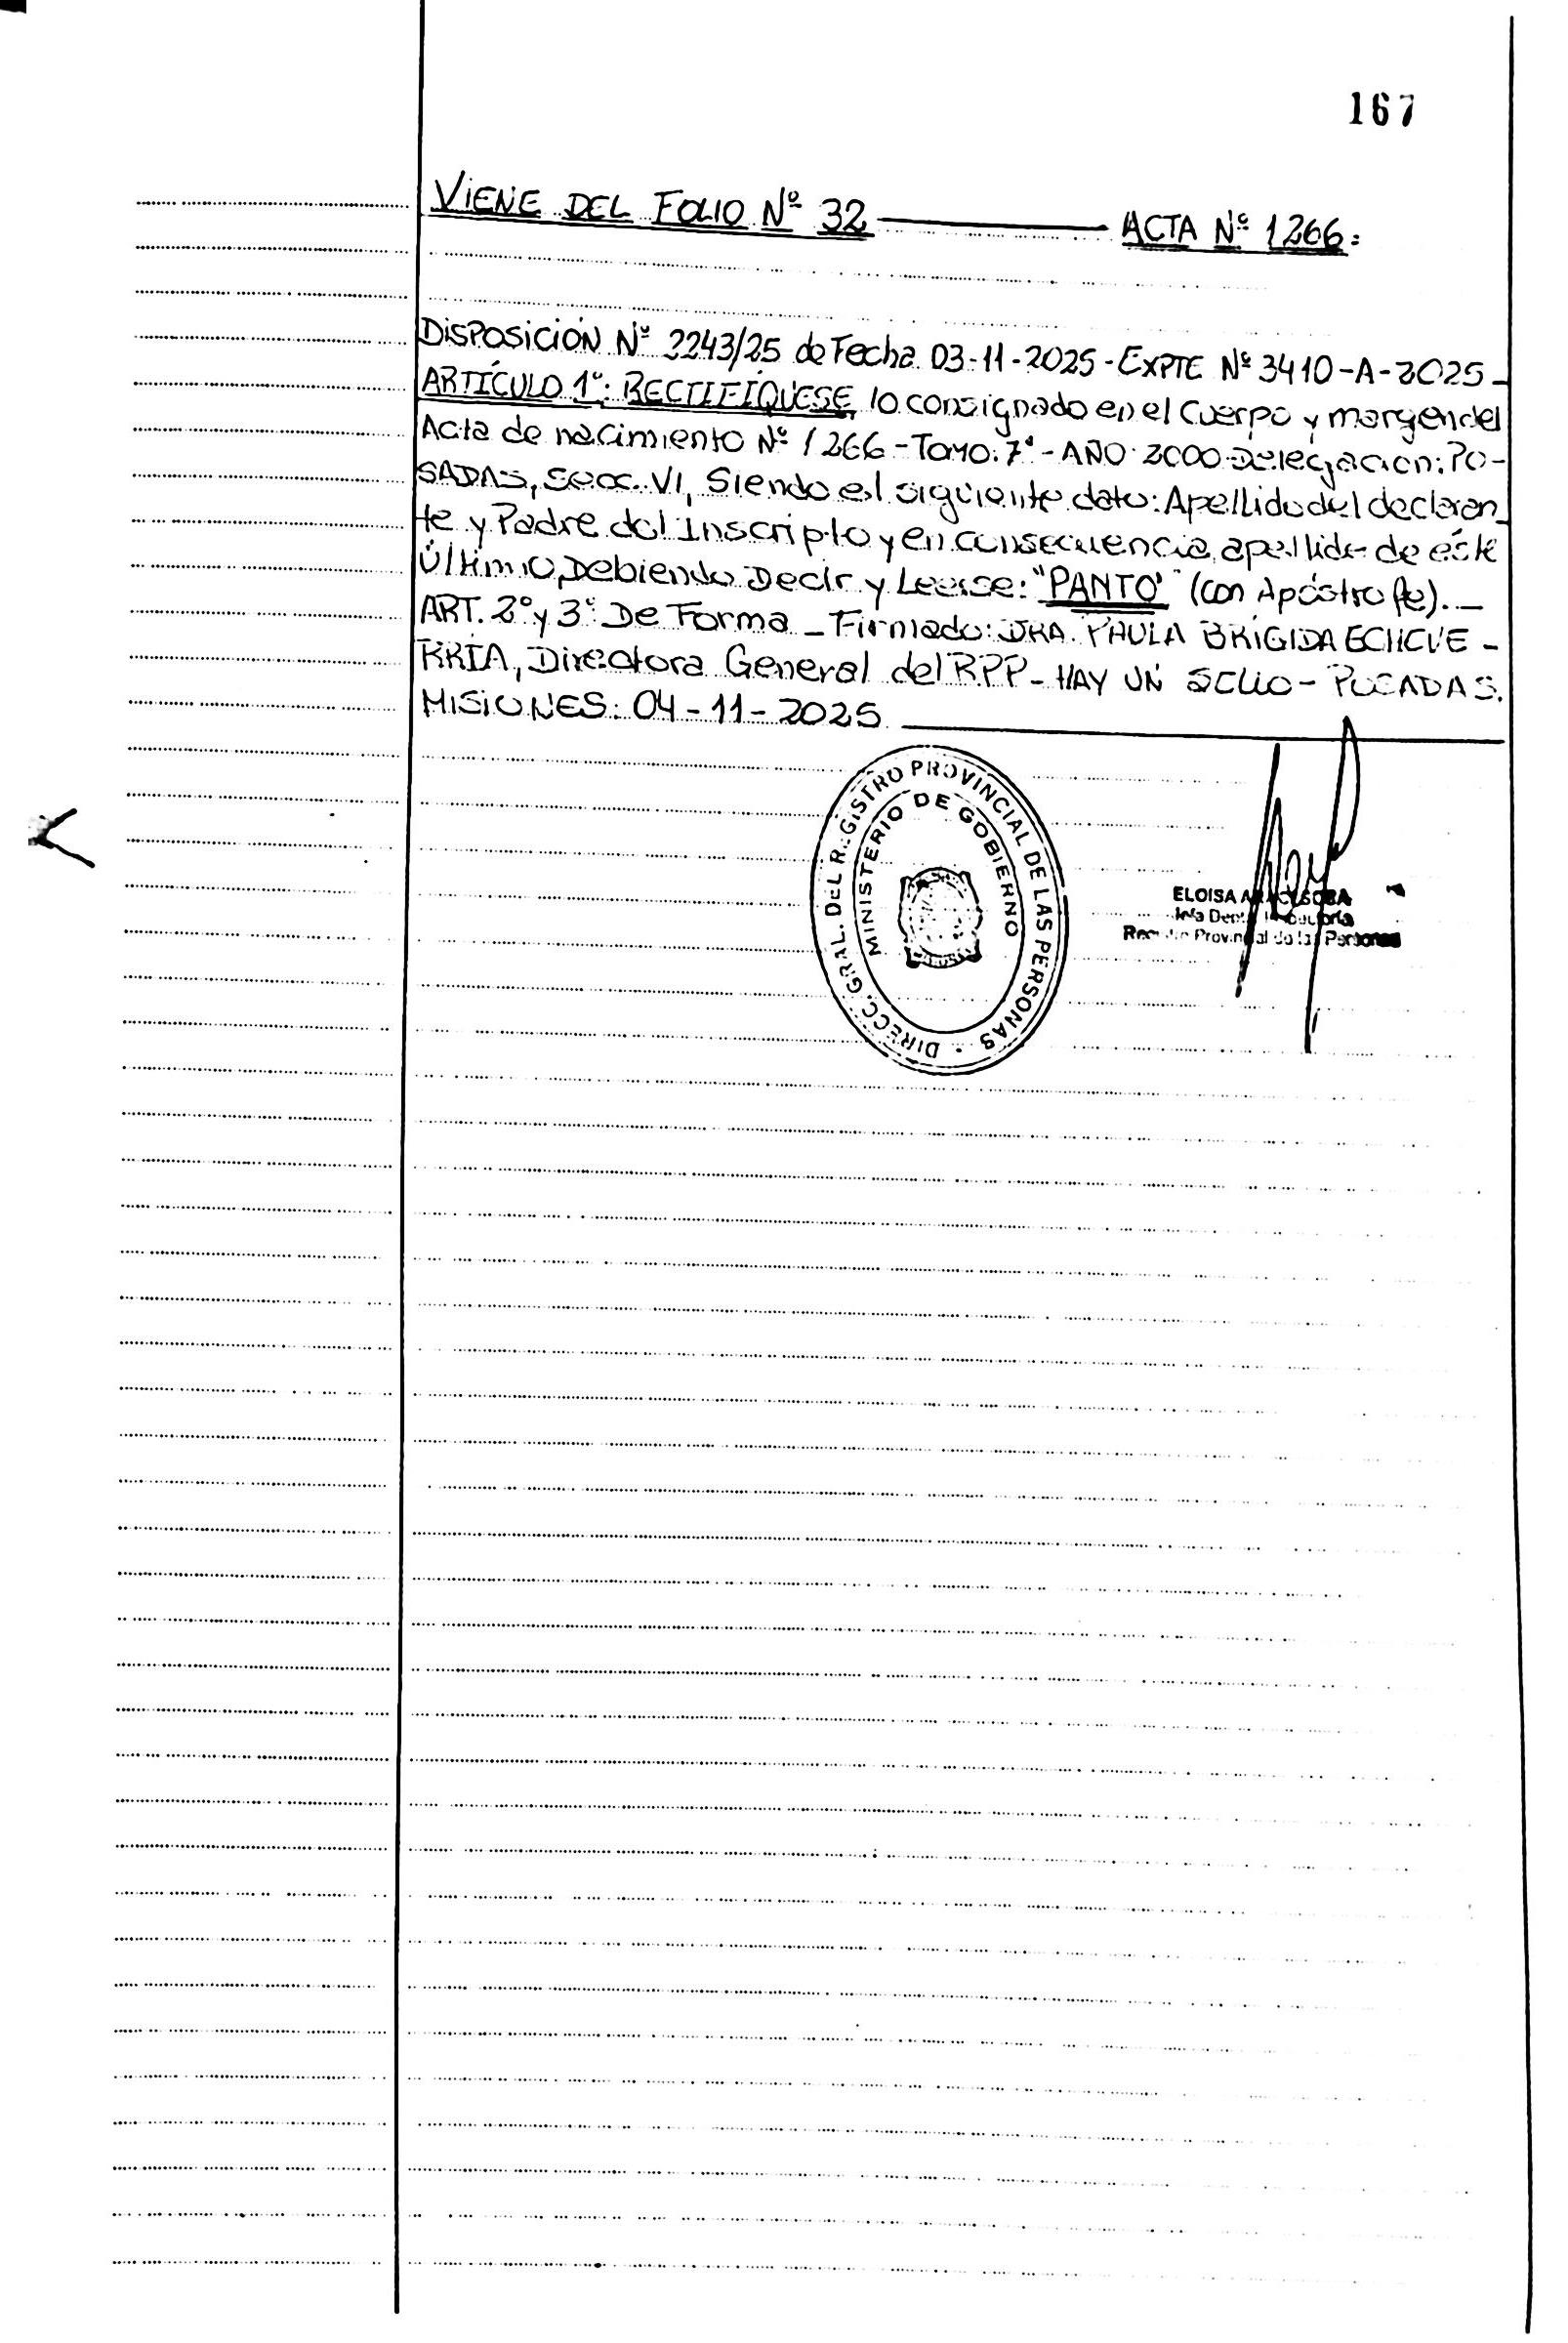 167
VIENE DEL FOLIO Nº 32 ACTA Nº 1266:
DISPOSICIÓN Nº 2243/25 de Fecha 03-11-2025 - EXPTE Nº 3410-A-2025-
ARTÍCULO 1º: RECTIFÍQUESE, lo consignado en el Cuerpo y margen del
Acta de nacimiento Nº 1266 - Tomo: 7º - AÑO 2000 Delegación: PO-
SADAS, Secc. VI, Siendo el siguiente dato: Apellido del declaran_
te y Padre del Inscripto y en consecuencia, apellido de éste
Último, Debiendo Decir y Leerse: "PANTO'" (con Apóstrofe).—
ART. 2º y 3º De Forma - Firmado: DRA. PAULA BRÍGIDA ECHEVE-
RRÍA, Directora General del R.P.P - HAY UN SELLO - POSADAS.
MISIONES: 04-11-2025
DIRECC. GRAL. DEL REGISTRO PROVINCIAL DE LAS PERSONAS
MINISTERIO DE GOBIERNO
ELOISA
Registro Provincial de las Personas